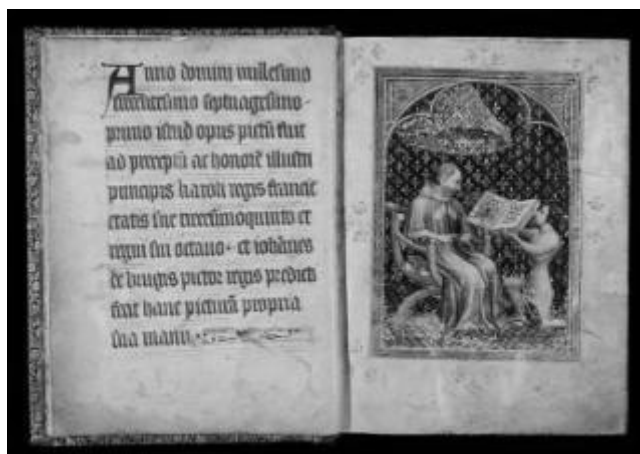 Anno domini millesimo
trecentesimo septuagesimo
primo istud opus pictū fuit
ad preceptū ac honorē illustri
principis karoli regis francie
etatis sue tricesimoquinto et
regni sui octavo · et iohānes
de brugis pictor regis predicti
fecit hanc picturā propria
sua manu ·